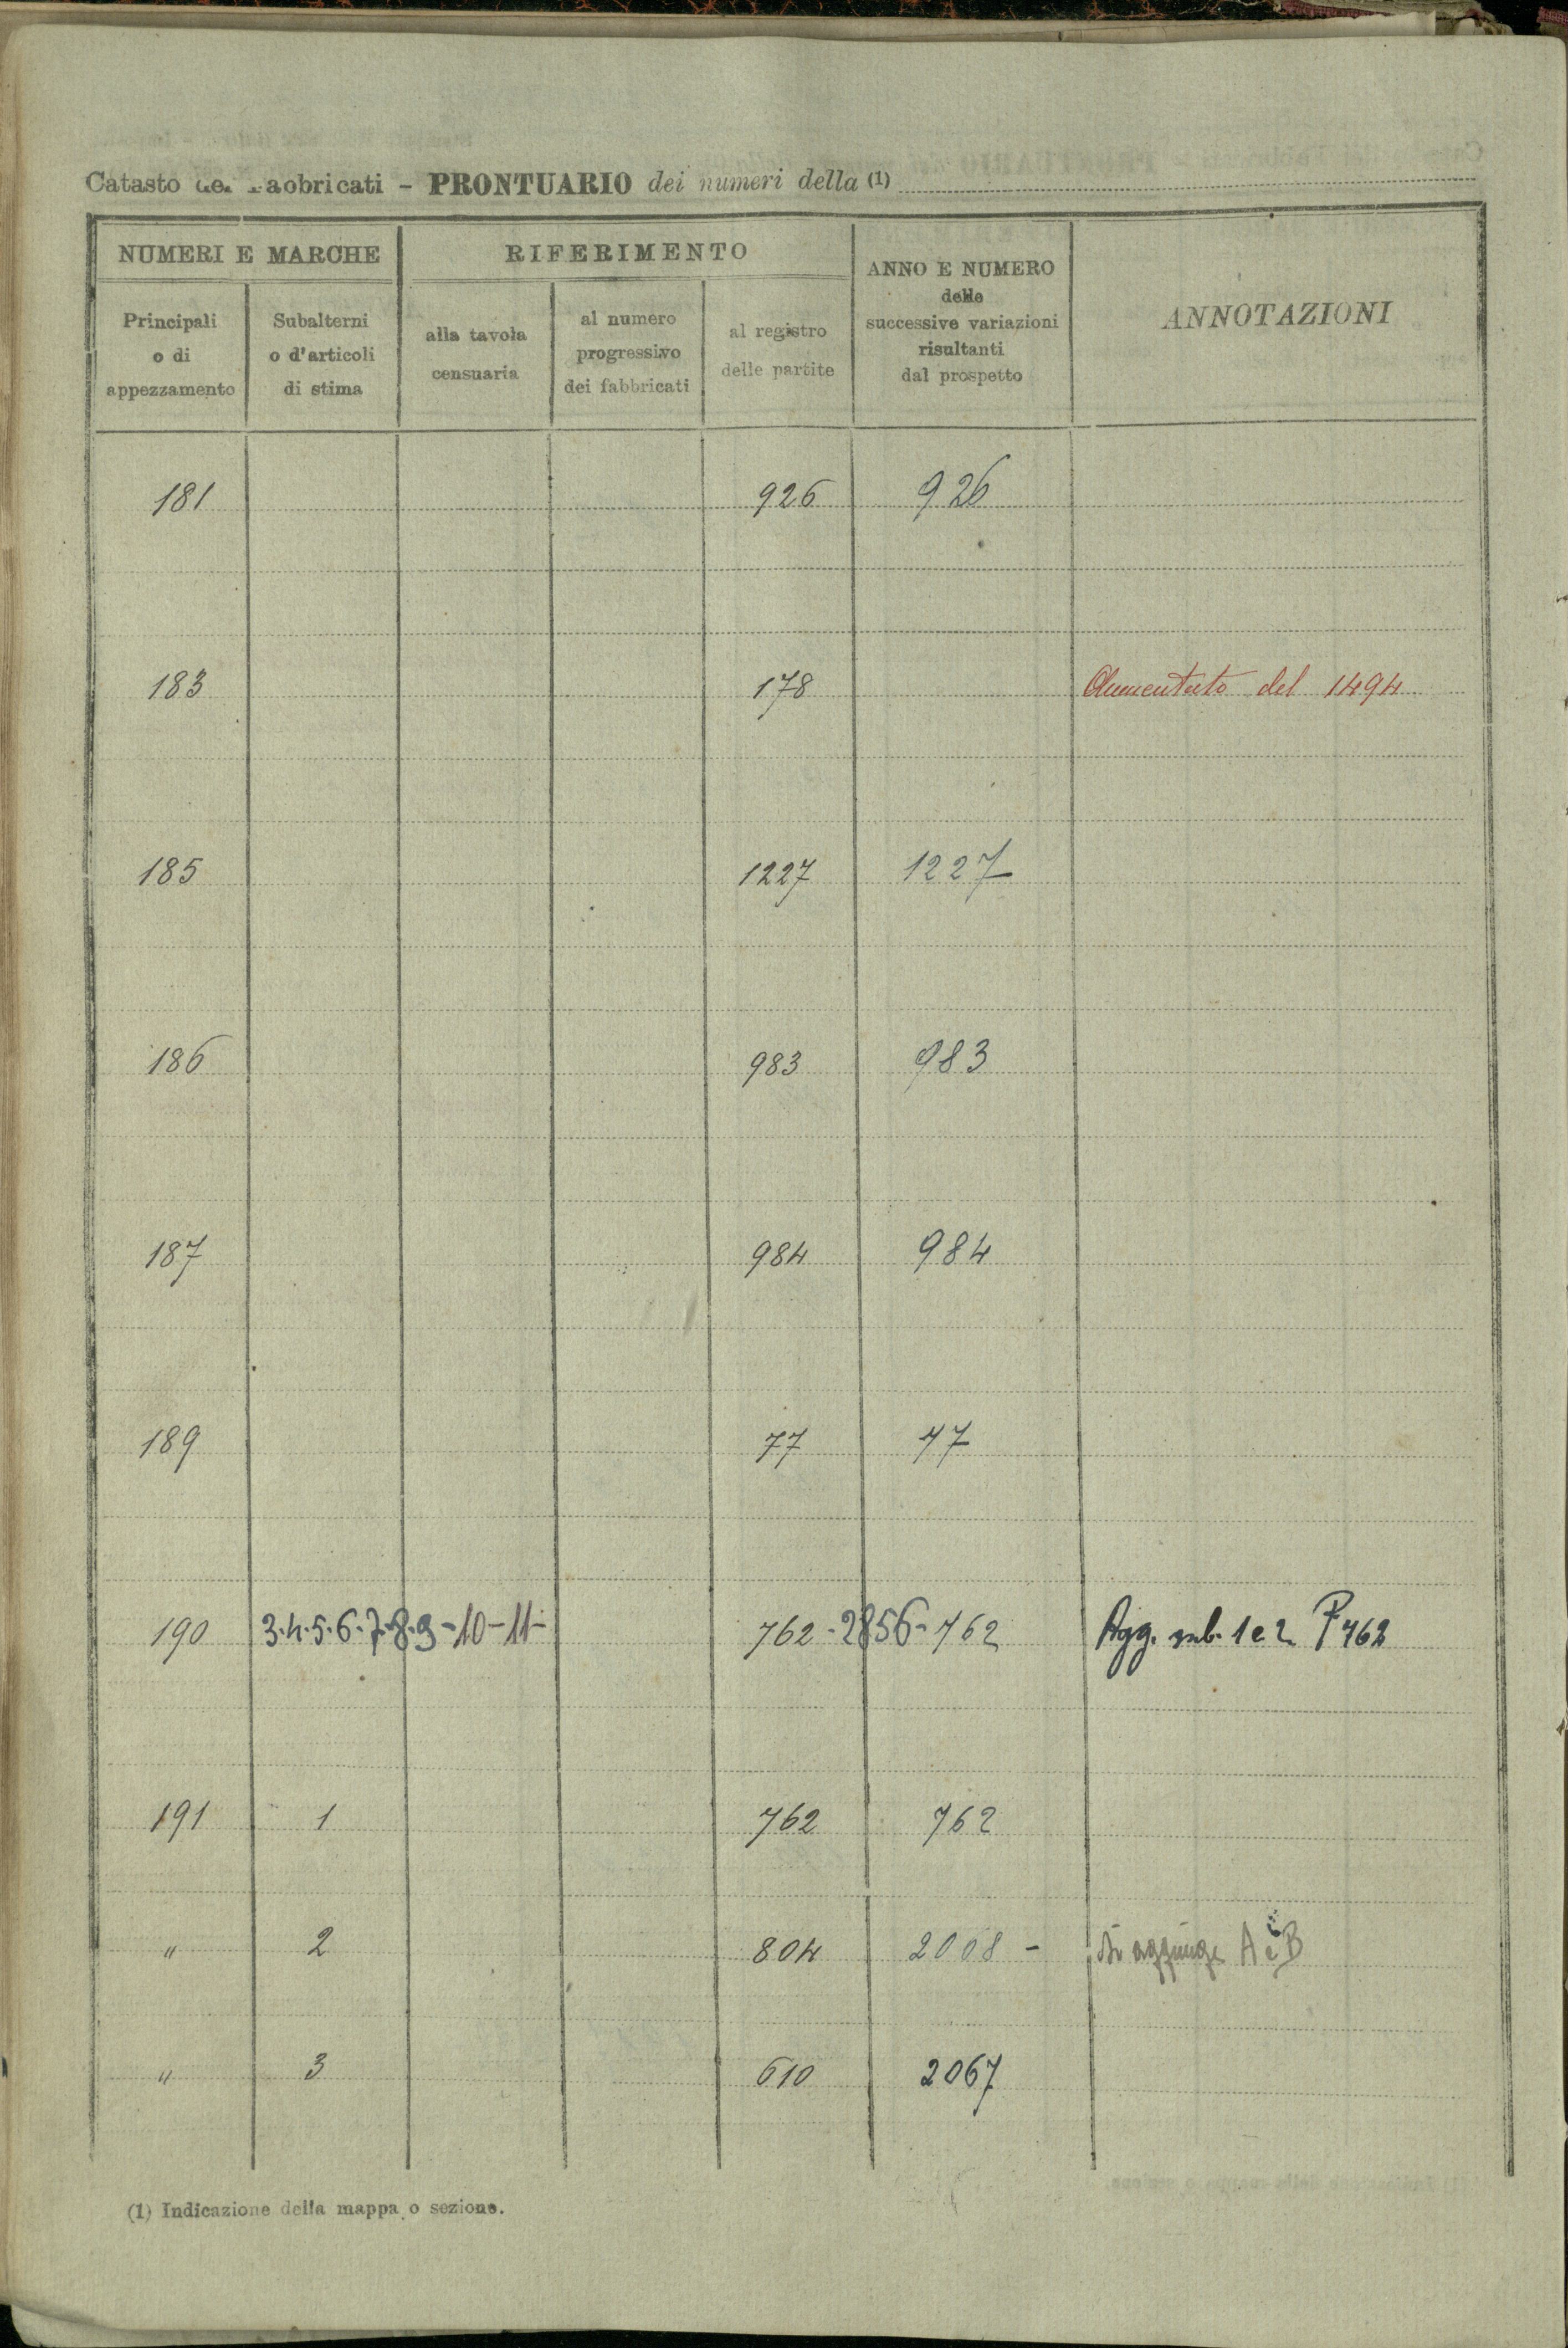 Catasto dei Fabbricati - PRONTUARIO dei numeri della (1)
NUMERI E MARCHE
RIFERIMENTO
ANNO E NUMERO
delle
successive variazioni
risultanti
dal prospetto
ANNOTAZIONI
Principali
o di
appezzamento
Subalterni
o d'articoli
di stima
alla tavola
censuaria
al numero
progressivo
dei fabbricati
al registro
delle partite
181 926 926
183 178 Aumentato del 1494
185 1227 1227
186 983 983
187 984 984
189 77 77
190 3.4.5.6.7.8.9-10-11- 762-2856-762 Agg. sub. 1 e 2 P 762
191 1 762 762
" 2 804 2008 - Si aggiunge A e B
" 3 610 2067
(1) Indicazione della mappa o sezione.